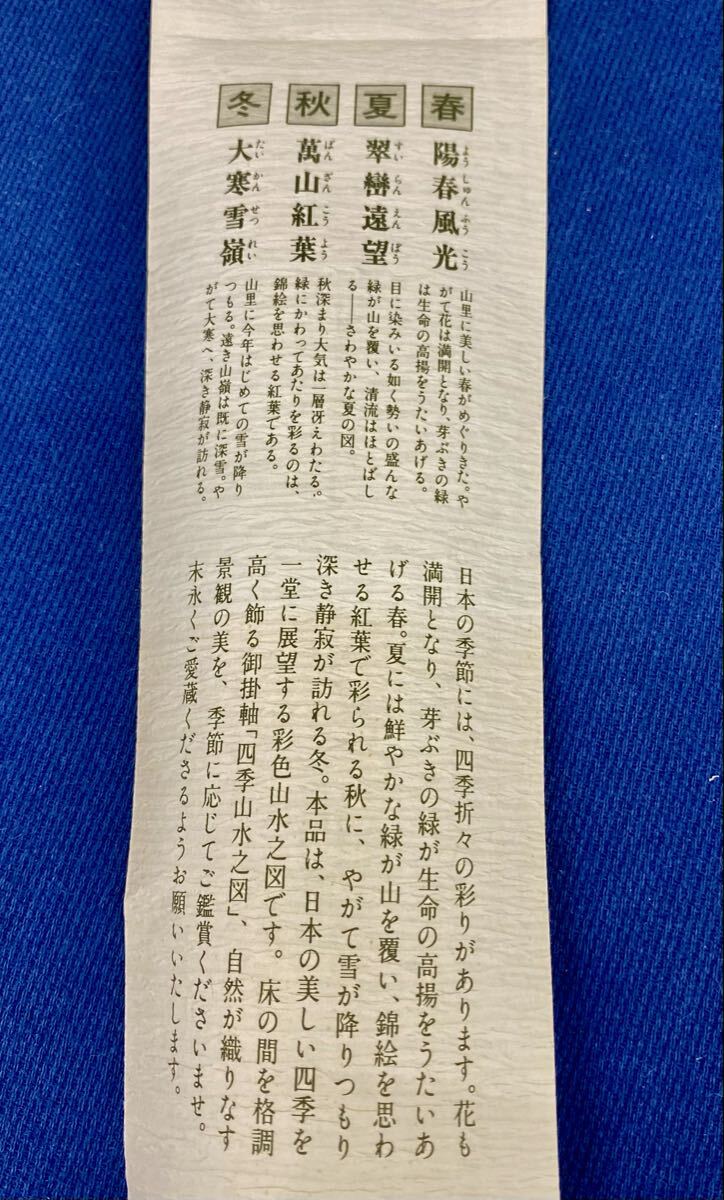 春
陽春風光
ようしゅんふうこう
山里に美しい春がめぐりきた。や
がて花は満開となり、芽ぶきの緑
は生命の高揚をうたいあげる。
夏
翠巒遠望
すいらんえんぼう
目に染みいる如く勢いの盛んな
緑が山を覆い、清流はほとばし
る――さわやかな夏の図。
秋
萬山紅葉
ばんざんこうよう
秋深まり大気は一層冴えわたる。
緑にかわってあたりを彩るのは、
錦絵を思わせる紅葉である。
冬
大寒雪嶺
たいかんせつれい
山里に今年はじめての雪が降り
つもる。遠き山嶺は既に深雪。や
がて大寒へ、深き静寂が訪れる。
日本の季節には、四季折々の彩りがあります。花も
満開となり、芽ぶきの緑が生命の高揚をうたいあ
げる春。夏には鮮やかな緑が山を覆い、錦絵を思わ
せる紅葉で彩られる秋に、やがて雪が降りつもり
深き静寂が訪れる冬。本品は、日本の美しい四季を
一堂に展望する彩色山水之図です。床の間を格調
高く飾る御掛軸「四季山水之図」、自然が織りなす
景観の美を、季節に応じてご鑑賞くださいませ。
末永くご愛蔵くださるようお願いいたします。